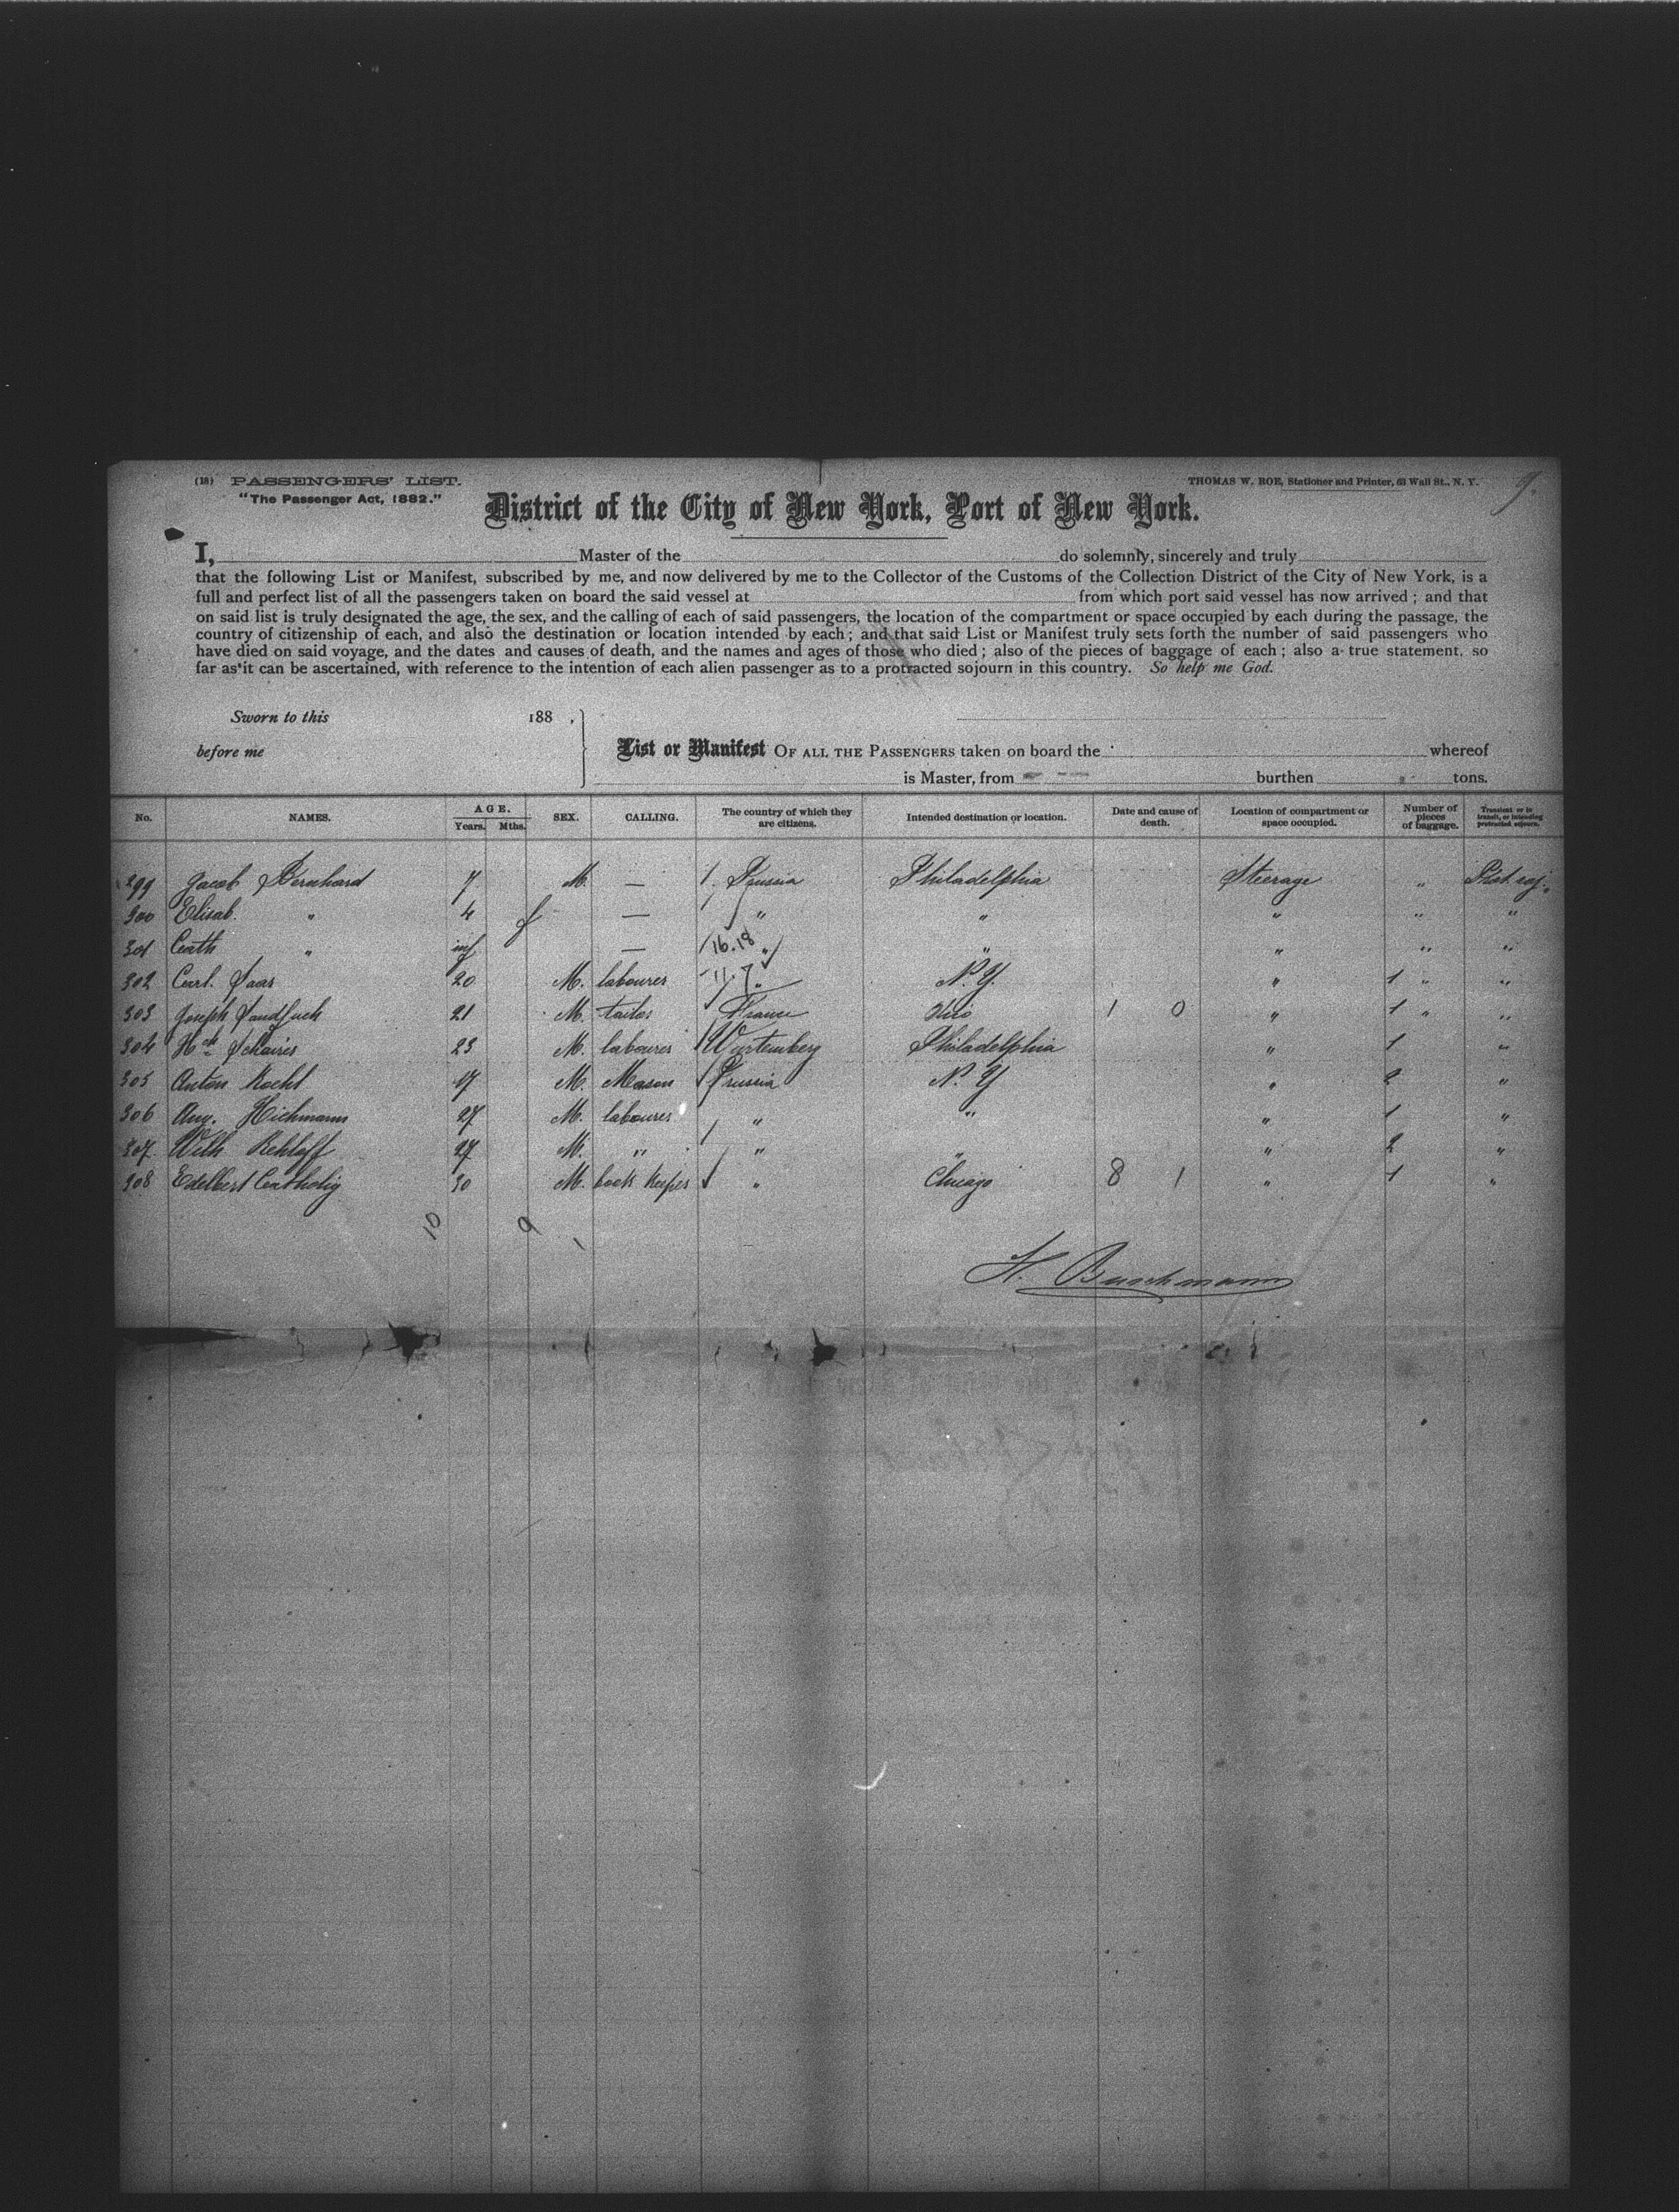 (18) PASSENGERS' LIST.
THOMAS W. ROE, Stationer and Printer, 63 Wall St., N. Y.
9.
"The Passenger Act, 1882."
District of the City of New York, Port of New York.
I, Master of the do solemnly, sincerely and truly
that the following List or Manifest, subscribed by me, and now delivered by me to the Collector of the Customs of the Collection District of the City of New York, is a
full and perfect list of all the passengers taken on board the said vessel at from which port said vessel has now arrived ; and that
on said list is truly designated the age, the sex, and the calling of each of said passengers, the location of the compartment or space occupied by each during the passage, the
country of citizenship of each, and also the destination or location intended by each ; and that said List or Manifest truly sets forth the number of said passengers who
have died on said voyage, and the dates and causes of death, and the names and ages of those who died ; also of the pieces of baggage of each ; also a true statement, so
far as it can be ascertained, with reference to the intention of each alien passenger as to a protracted sojourn in this country. So help me God.
Sworn to this 188 ,
before me
List or Manifest OF ALL THE PASSENGERS taken on board the whereof
is Master, from burthen tons.
No. NAMES. AGE. Years. Mths. SEX. CALLING. The country of which they are citizens. Intended destination or location. Date and cause of death. Location of compartment or space occupied. Number of pieces of baggage. Transient or in transit, or intending protracted sojourn.
299 Jacob Bernhard 7 M. — Prussia Philadelphia Steerage " Prot. soj.
300 Elisab. " 4 f — " " " " "
301 Cath " inf — 16.18 " " " " "
302 Carl. 20 M. labourer 11.7 " N. Y. " 1 " "
303 Joseph 21 M. tailor France Ohio 1 0 " 1 " "
304 Hch 23 M. labourer Wurtemberg Philadelphia " 1 "
305 Anton 17 M. Mason Prussia N. Y " 2 "
306 Aug. Hichmann 27 M. labourer " " " 1 "
307 Wilh Rehloff 27 M. " " " " 2 "
308 Edelbert 30 M. book keeper " Chicago 8 1 " 1 "
10 9 1
H. Buschmann